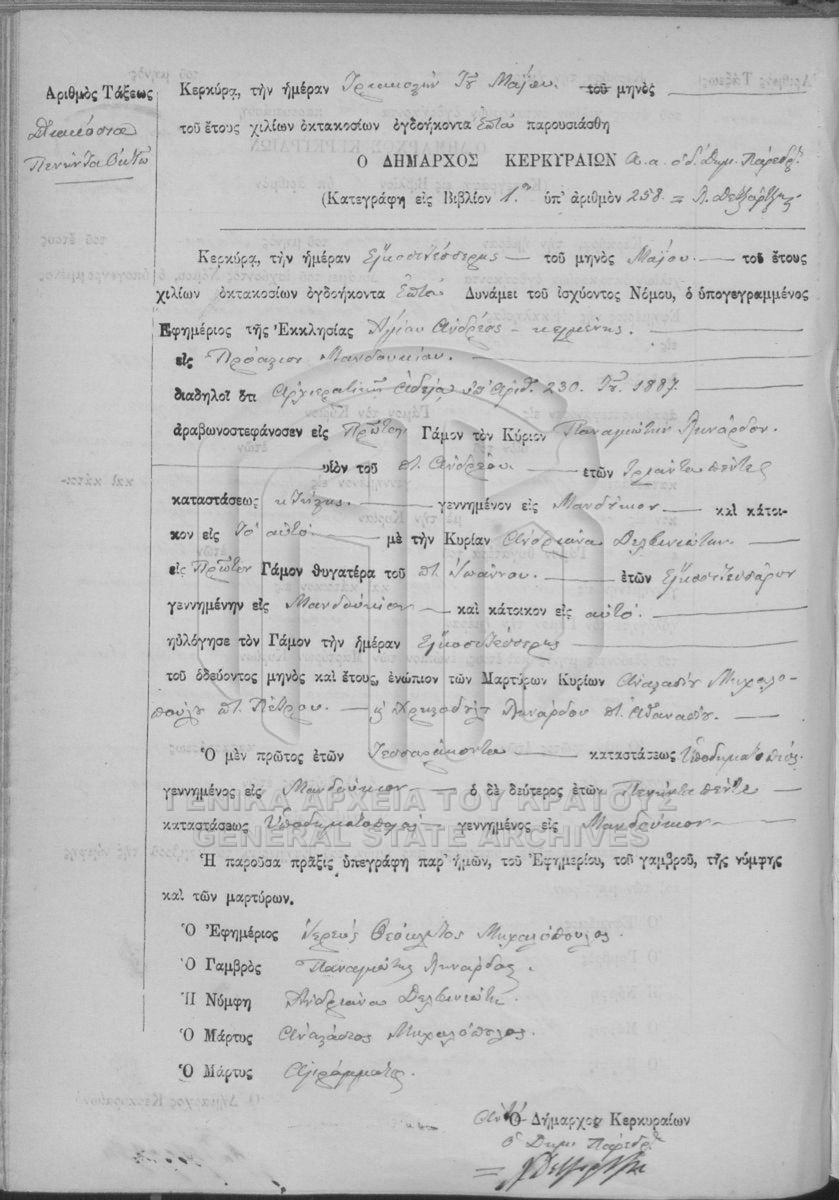 Ἀριθμὸς Τάξεως
Διακόσια
Πενῆντα Οκτὼ
Κερκύρᾳ, τὴν ἡμέραν Τριακοστὴν Μαΐου. τοῦ μηνὸς
τοῦ ἔτους χιλίων ὀκτακοσίων ὀγδοήκοντα Επτὰ παρουσιάσθη
Ο ΔΗΜΑΡΧΟΣ ΚΕΡΚΥΡΑΙΩΝ Α. α. ὁ δ. Δημ. Πάρεδρ.
(Κατεγράφη εἰς Βιβλίον 1ον ὑπ' ἀριθμὸν 258
Κερκύρᾳ, τὴν ἡμέραν Εἴκοσι τέσσερης τοῦ μηνὸς Μαΐου. τοῦ ἔτους
χιλίων ὀκτακοσίων ὀγδοήκοντα Επτὰ Δυνάμει τοῦ ἰσχύοντος Νόμου, ὁ ὑπογεγραμμένος
Ἐφημέριος τῆς Ἐκκλησίας Ἁγίου Ανδρέος
εἰς Προάστιον Μανδουκίου.
διαδηλοῖ ὅτι Ἀρχιερατικῆς ἀδεία ὑπ Αριθ. 230. 1887.
ἀραβωνοστεφάνοσεν εἰς Πρῶτον Γάμον τὸν Κύριον Παναγιώτην Λινάρδον.
υἱὸν τοῦ Ανδρέου. ἐτῶν Τριάντα πέντε
καταστάσεως κτίστης. γεννημένον εἰς Μανδύκιον καὶ κάτοι-
κον εἰς Τὸ αὐτό. μὲ τὴν Κυρίαν Ανδριάνα Δελβινιώτην.
εἰς Πρῶτον Γάμον θυγατέρα τοῦ Ἰωάννου. ἐτῶν Εἴκοσι Τεσσάρον
γεννημένην εἰς Μανδούκιον καὶ κάτοικον εἰς αὐτό.
ηὐλόγησε τὸν Γάμον τὴν ἡμέραν Εἴκοσι τέσσερης
τοῦ ὁδεύοντος μηνὸς καὶ ἔτους, ἐνώπιον τῶν Μαρτύρων Κυρίων Αναστάσιον Μιχαλο-
πούλου Πέτρου. Λινάρδου Αθανασίου.
Ὁ μὲν πρῶτος ἐτῶν Τεσσαράκοντα καταστάσεως Ὑποδηματοποιός.
γεννημένος εἰς Μανδούκιον ὁ δὲ δεύτερος ἐτῶν Πενήντα πέντε
καταστάσεως Ὑποδηματοποιός γεννημένος εἰς Μανδούκιον
ΓΕΝΙΚΑ ΑΡΧΕΙΑ ΤΟΥ ΚΡΑΤΟΥΣ
GENERAL STATE ARCHIVES
Ἡ παροῦσα πρᾶξις ὑπεγράφη παρ' ἡμῶν, τοῦ Ἐφημερίου, τοῦ γαμβροῦ, τῆς νύμφης
καὶ τῶν μαρτύρων.
Ὁ Ἐφημέριος Ἱερεὺς Θεόκλητος Μιχαλόπουλος.
Ὁ Γαμβρὸς Παναγιώτης Λινάρδος.
Ἡ Νύμφη Ανδριάνα Δελβινιώτη.
Ὁ Μάρτυς Αναστάσιος Μιχαλόπουλος.
Ὁ Μάρτυς Αγράμματος.
Ὁ Δήμαρχος Κερκυραίων
ὁ Δημ. Πάρεδρ.